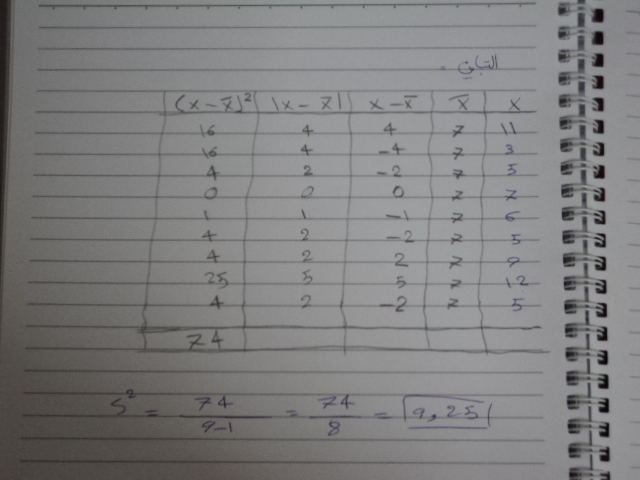 التباين =
(x - x̄)² |x - x̄| x - x̄ x̄ x
16 4 4 7 11
16 4 -4 7 3
4 2 -2 7 5
0 0 0 7 7
1 1 -1 7 6
4 2 -2 7 5
4 2 2 7 9
25 5 5 7 12
4 2 -2 7 5
74
S² = 74/9-1 = 74/8 = 9,25